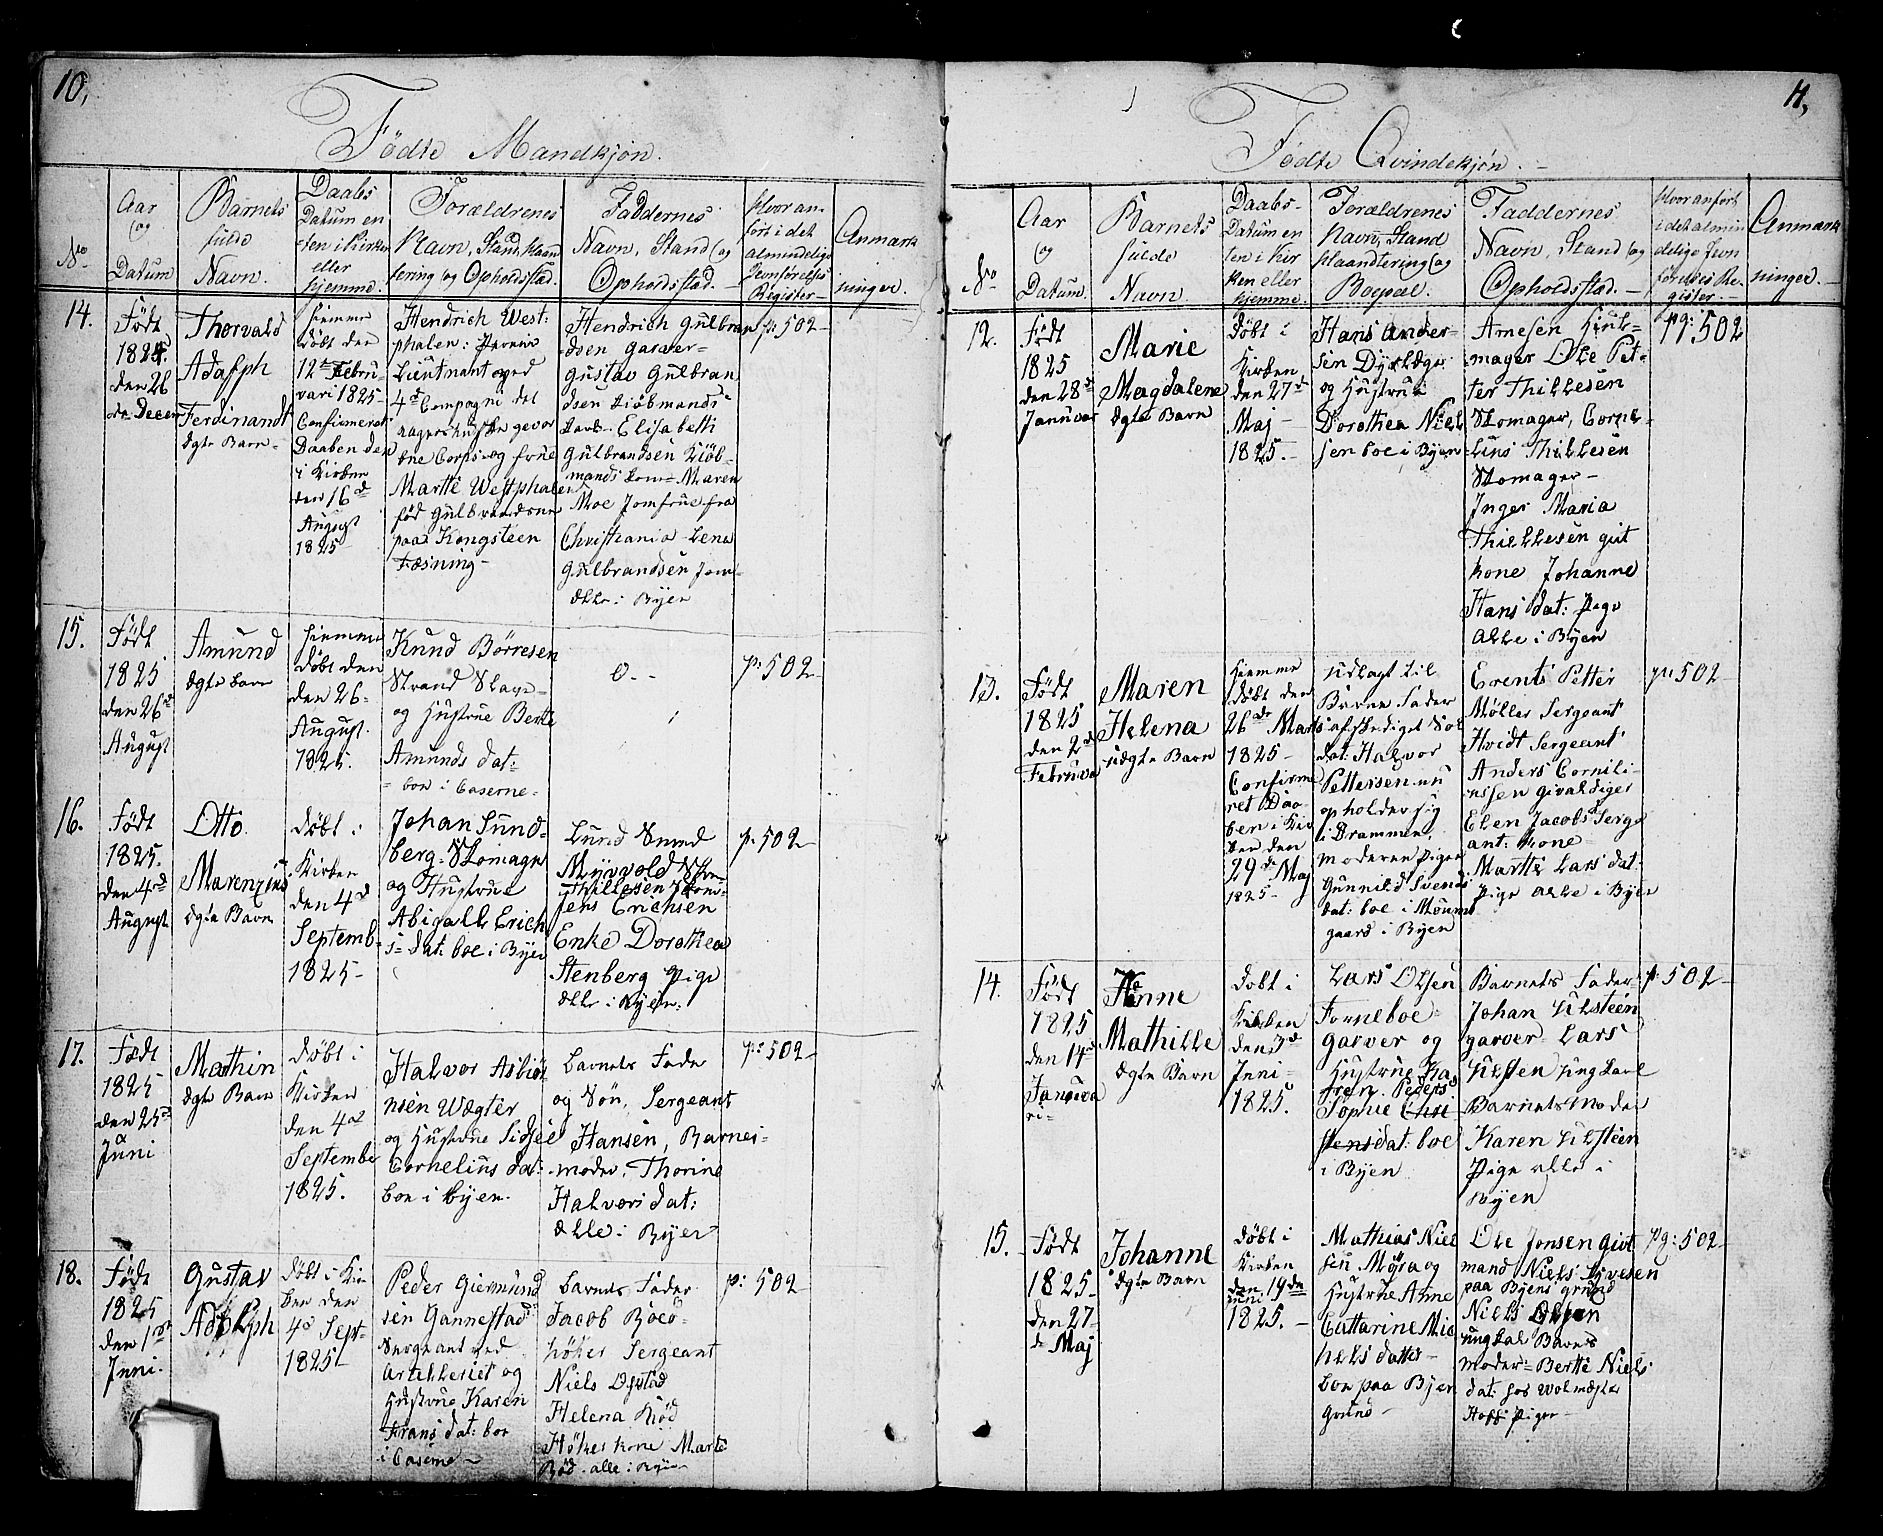 10,
Fødte Mandkjøn.
No
Aar
og
Datum
Barnets
fulde
Navn.
Daabs
Datum en
ten i Kirken
eller
hjemme.
Forældrenes
Navn, Stand, Haan
tering og Opholdsstad.
Faddernes
Navn, Stand og
Opholdsstad.
Hvor an-
ført i det
almindelige
Jevnførelses
Register
Anmærk
ninger.
14.
Født
1824
den 26
de Decem
Thorvald
Adolph
Ferdinandt
Ægte Barn
hjemme
døbt den
12te Febru-
vari 1825
Confirmeret
Daaben den
i Kirken
den 16d
August
1825
Hendrich West:
phalen:
Lieutnant ved
4de Compagni det
Corps og frue
Marthe Westphalen
fød Gulbrandsen
paa Kongsteen
Fæsning
Hendrich Gulbran
dsen garver
Gustav Gulbran
dsen Kiøbmands
Elisabeth
Gulbrandsen Kiøb-
mands Maren
Moe Jomfrue fra
Christiania Lena
Gulbrandsen Jom-
alle i Byen
p: 502
15.
Født
1825
den 26d
August
Amund
Ægte barn
hiemme
døbt den
den 26
August
1825.
Knud Børresen
Strand
og Hustrue Berte
Amunds dat:
boe i Caserne
0. -
p: 502
16.
Født
1825.
den 4de
August
Otto
Marenzius
Ægte Barn
døbt i
Kirken
den 4d
Septemb
1825
Johan Sund-
berg Skomager
og Hustrue
Abigall Erich
s dat: boe i Byen
Lund Smed
Myrvold
Thillesen
Jens Erichsen
Enke Dorothea
Stenberg Pige
alle i Byen.
p: 502
17.
Født
1825
den 25d
Juni
Mathin
Ægte Barn
Døbt i
Kirken
den 4d
September
1825.
Halvor Asbiør
nsen Vægter
og Hustrue Sidsele
Cornelius dat:
boe i byen.
barnets Fader
og Søn, Sergeant
Hansen, Barnes-
moder, Thorine
Halvors dat:
alle i Byen
p: 502
18.
Født
1825
den 1ste
Juni.
Gustav
Adolph
døbt i Kir
ken den
4d Sept-
1825
Peder Giermund
sen Gannestad
Sergeant ved
Artelleriet og
Hustrue Karen
Frans dat: boe
i Caserne
barnets Fader
Jacob Bøeö
høker Sergeant
Niels Ofstad
Helena Kiød
Høkes kone Marte
Bød alle i Byen
p: 502
11,
Fødte Qvindekjøn.
No
Aar
og
Datum.
Barnets
fulde
Navn.
Daabs-
Datum en
ten i Kir
ken eller
hjemme.
Forældrenes
Navn, Stand
Haandtering og
Boepæl.
Faddernes
Navn, Stand og
Opholdsstad.
Hvor anført
i det almin
delige Jevn
førelses Re-
gister.
Anmærk
ninger.
12.
Født
1825
den 28d
Januvar
Marie
Magdalene
Ægte Barn
Døbt i
Kirken
den 27d
Maj
1825.
Hans Ander-
sen Dyrlæge
og Hustrue
Dorothea Niel
sen boe i Byen
Arnesen Hiul-
mager Ole Pet-
ter Thillesen
Skomager, Corne-
lius Thillesen
Skomager
Inger Maria
Thillesen gift
kone Johanne
Hans dat: Pige
alle i Byen
pg: 502
13.
Født
1825
den 2d
Februva
Maren
Helena
uægte Barn
hiemme
døbt den
26de Marts
1825
Confirme
ret Daa-
ben i Kir
ken den
29d Maj
1825
udlagt til
Barne Fader
afskediget Sol
dat: Halvor
Pettersen nu
opholder sig
i Drammen,
moderen Pigen
Gunnild Svends
dat: boe i
gaard i Byen
Erents Petter
Møller Sergeant
Hvidt Sergeant
Anders Cornili-
ussen givaldiger
Elen Jacobs Serge
ant: Kone
Marthe Lars dat
Pige alle i Byen
p: 502
14.
Født
1825
den 14d
Januva
ri-
Hanne
Mathilde
Ægte Barn
Døbt i
Kirken
den 3d
Juni
1825.
Lars Olsen
Torneboe
garver og
Hustrue Ka
tren. Peders
Sophie Chri
stensdat: boe
i Byen
Barnets Fader
Johan Ulsteen
garver Lars
Ulsten Ung karl
Barnets moder
Karen Ulsteen
Pige alle i
Byen
p: 502
15.
Født
1825
den 27
de Maj
Johanne
Ægte Barn
døbt i
Kirken
den 19de
Juni
1825.
Mathias Niel
sen. Myra og
Hustrue Anne
Cattarine Mic
hels datter
boe paa Byen
Grund
Ole Jonsen givt
mand Niels Ivesen
paa Byens grund
Niels Olsen
ungkal Barnets
moder: Berthe Niels
dat: hos Volmæster
Hoff: Pige
pg: 502